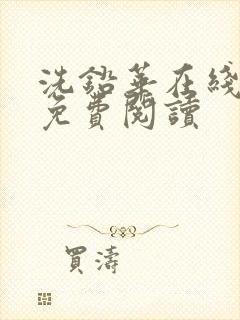 洗鉛華在綫
免費閱讀
買濤